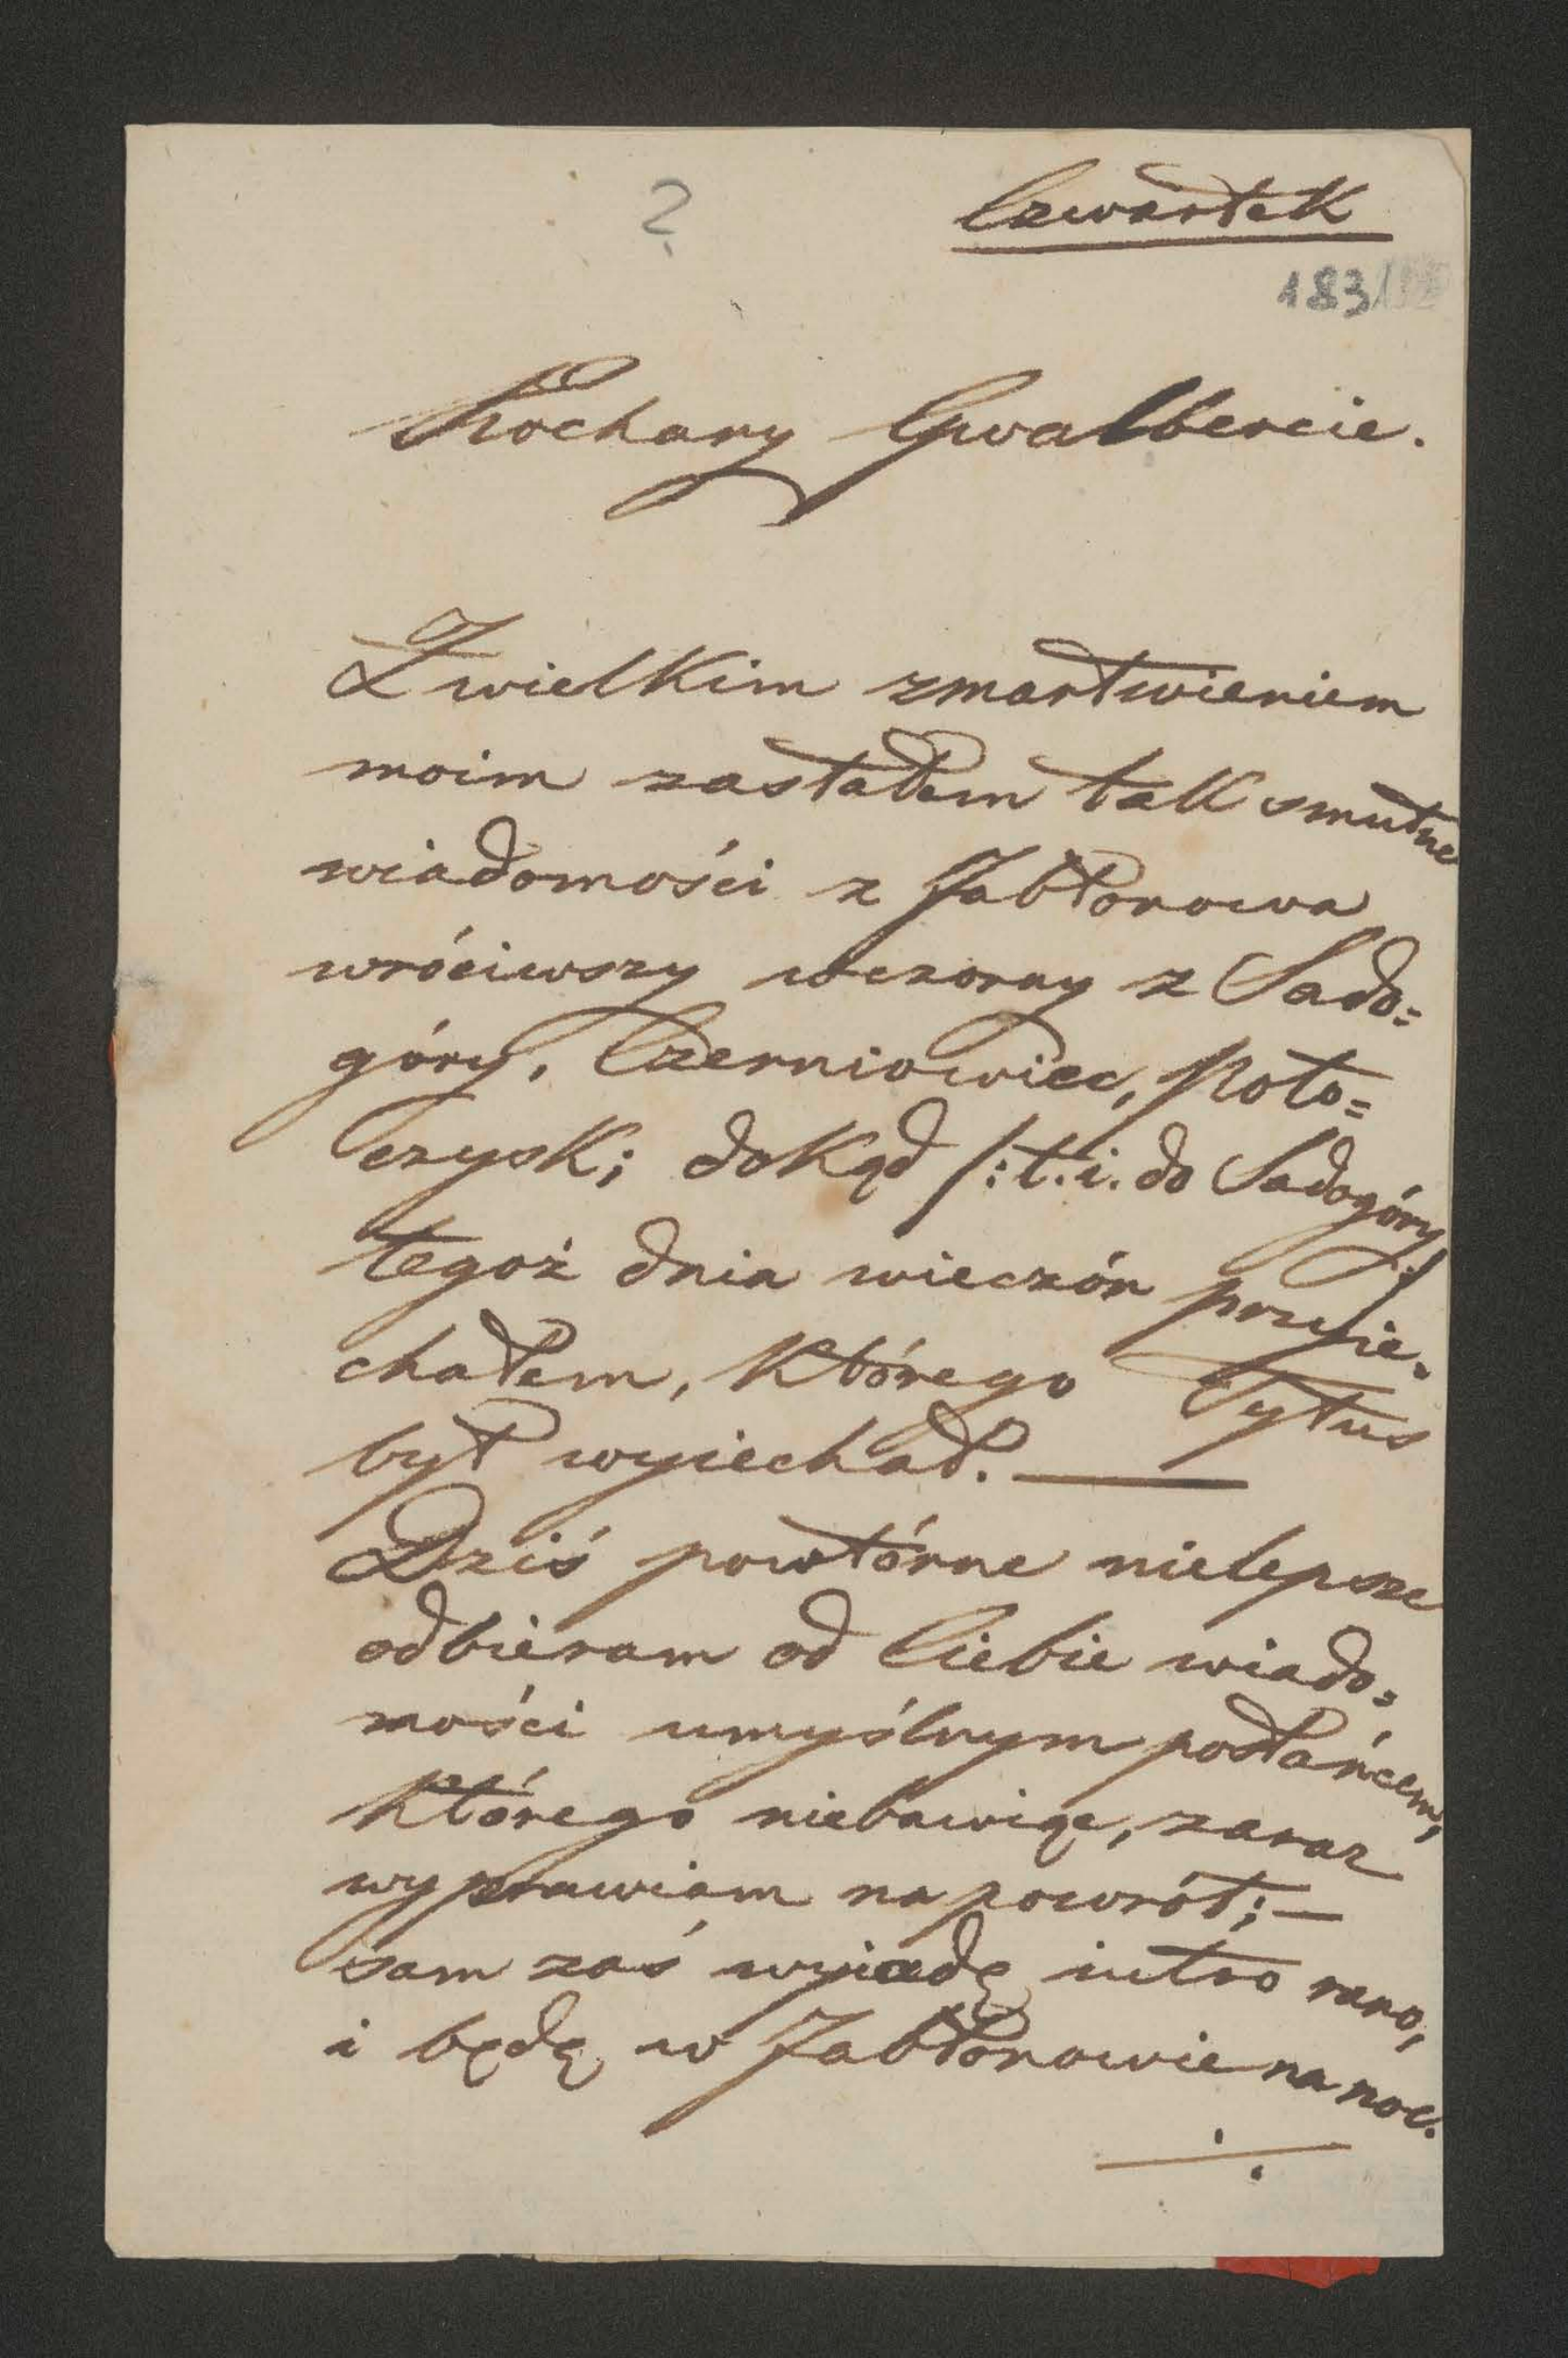 ?
Czwartek
183
Kochany Gwalbercie.
Z wielkim zmartwieniem
moim zastałem tak smutne
wiadomości z Jabłonowa
wróciwszy wczoray z Sado=
góry, Czerniowiec, Poto=
czysk; dokąd /: t. i. do Sadogóry :/
tegoż dnia wieczór przyie=
chałem, którego Tytus
był wyiechał. —
Dziś powtórne nielepsze
odbieram od Ciebie wiado=
mości umyślnym posłańcem,
którego niebawiąc, zaraz
wyprawiam na powrót; —
sam zaś wyiadę iutro rano,
i będę w Jabłonowie na noc.